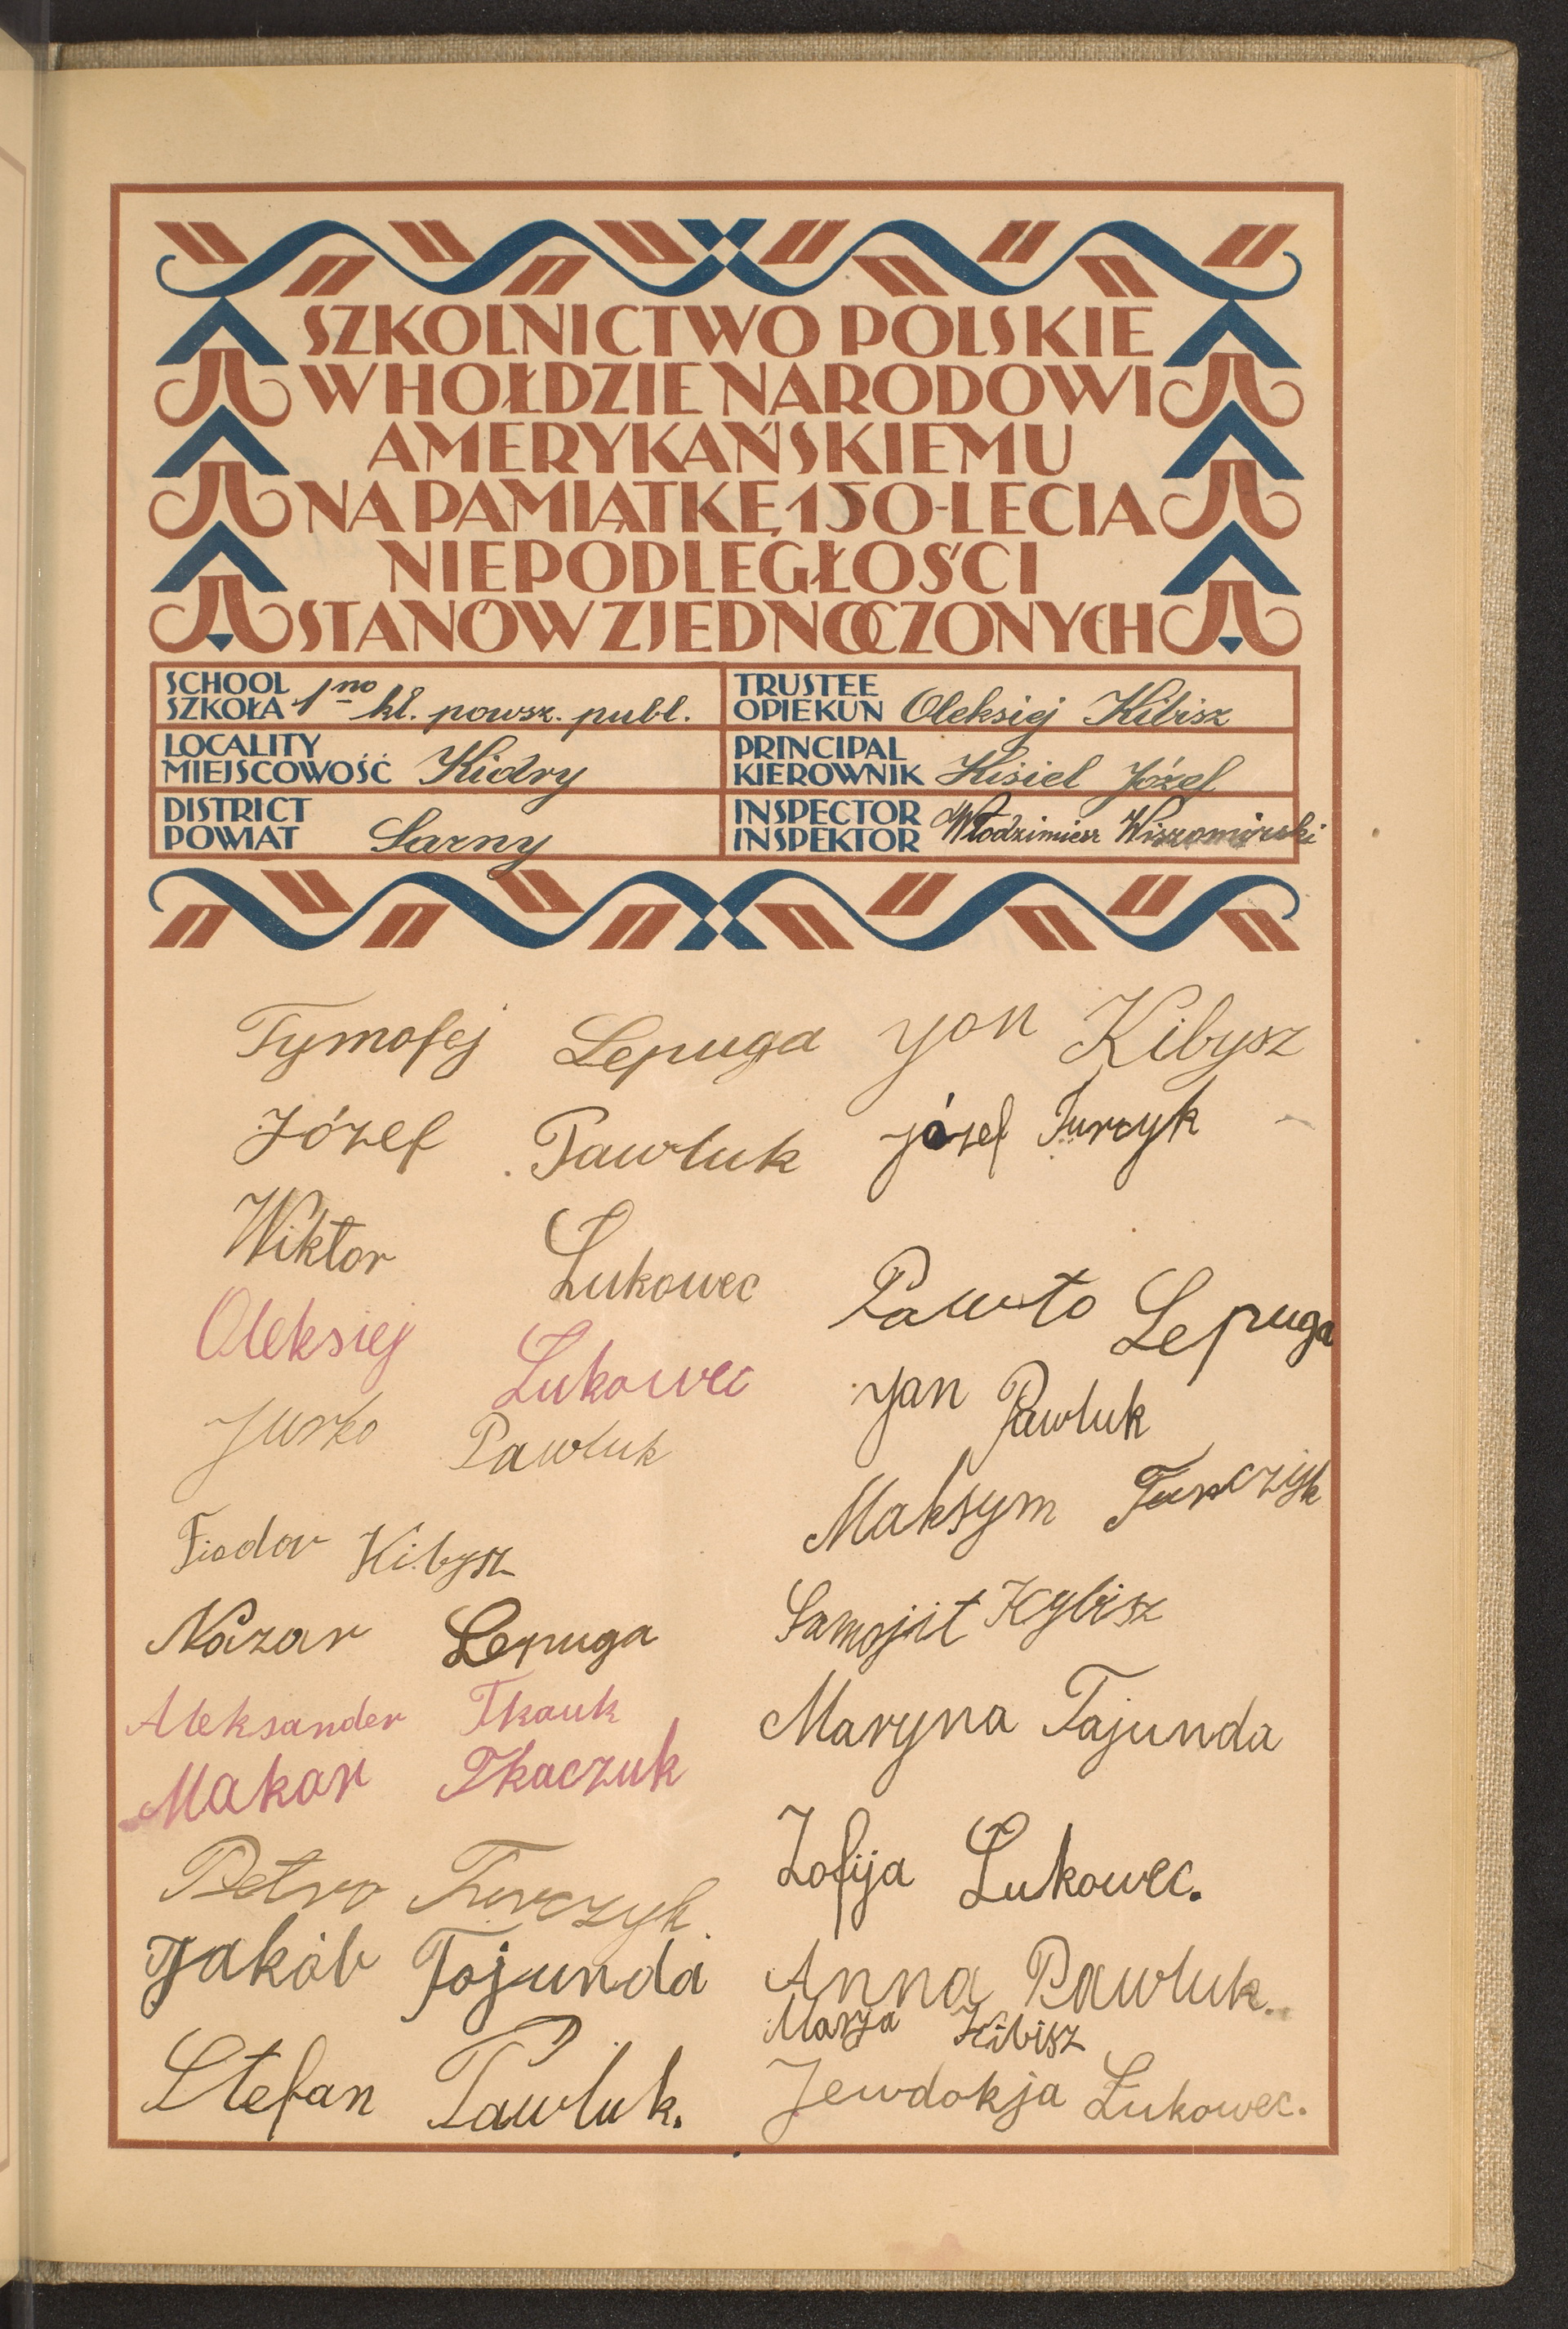 SZKOLNICTWO POLSKIE
W HOŁDZIE NARODOWI
AMERYKAŃSKIEMU
NA PAMIĄTKĘ 150-LECIA
NIEPODLEGŁOŚCI
STANÓW ZJEDNOCZONYCH
SCHOOL
SZKOŁA 1no kl. powsz. publ.
LOCALITY
MIEJSCOWOŚĆ Kidry
DISTRICT
POWIAT Sarny
TRUSTEE
OPIEKUN Oleksiej Kibisz
PRINCIPAL
KIEROWNIK Kisiel Józef
INSPECTOR
INSPEKTOR Włodzimierz
Tymofej Lepuga
Józef Pawluk
Wiktor Łukowec
Oleksiej Łukowec
Jurko Pawluk
Fiodor Kibysz
Nazar Lepuga
Aleksander Tkauk
Makar Tkaczuk
Petro Turczyk.
Jakób Tojunda
Stefan Pawluk.
Jon Kibysz
Józef Turcyk
Pawło Lepuga
Jan Pawluk
Maksym Turczyk
Samojit Kybisz
Maryna Tajunda
Zofija Łukowec.
Anna Pawluk.
Marja Kibisz
Jewdokja Łukowec.